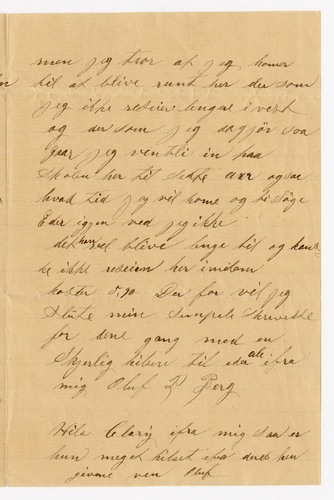 men jeg tror at jeg komer
til at blive runt her der som
jeg ikke reiser lengere i vest
og der som jeg da gjör saa
gaar jeg ventli in paa
Skolen her til ogsaa
hvad tid jeg vil kome og besöge
Eder igjen ved jeg ikke
det kan vel blive lenge til og kans
ke ikke her imelom
koster 5,70 Der for vil jeg
slute min Simpele Skrivelse
for dene gang med en
Kjerlig hilsen til eder ale ifra
mig Oluf P Berg
Hils Clary ifra mig saa er
hun meget hilset ifra deres hen
givene ven Oluf